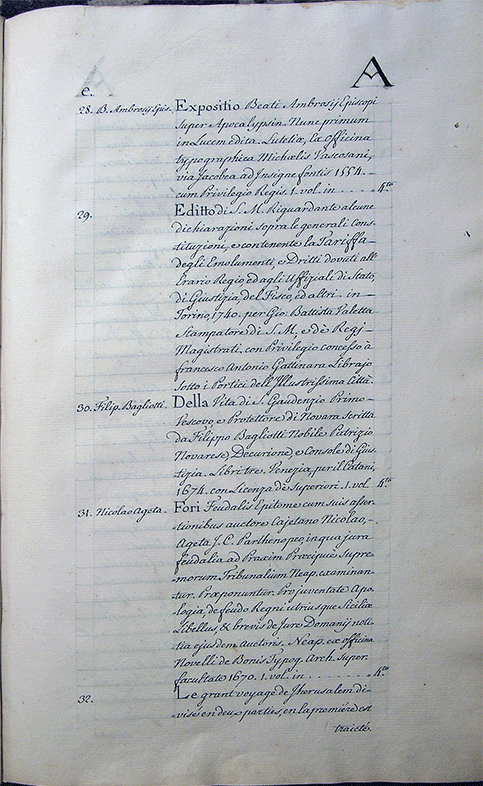 A
e.
28. B. Ambrosij Epis. Expositio Beati Ambrosij Episcopi
super Apocalypsin. Nunc primum
in Lucem edita. Lutetiæ, Ex officina
typographica Michælis Vascosani,
via Jacobea ad Insigne fontis 1554.
cum Privilegio Regis. 1. vol. in . . . . . 4.to
29. Editto di S. M. Riguardante alcune
dichiarazioni sopra le generali Cons-
tituzioni, e contenente la Tariffa
degli Emolumenti, e Dritti dovuti all'
Erario Regio, ed agli Uffiziali di Stato,
di Giustizia, del Fisco, ed altri. in
Torino, 1740. per Gio: Battista Valetta
Stampatore di S. M., e de' Regj
Magistrati, con Privilegio concesso a
francesco Antonio Gattinara Librajo
sotto i Portici dell'Illustrissima Città.
30. Filip. Bagliotti. Della Vita di S. Gaudenzio Primo
Vescovo, e Protettore di Novara scritta
da Filippo Bagliotti Nobile Patrizio
Novarese, Decurione, e Console di Gius-
tizia. Libri tre. Venezia, per il Catani,
1674. con Licenza de' Superiori. 1. vol. 4.to
31. Nicolao Ageta. Fori Feudalis Epitome cum suis asser-
tionibus auctore Cajetano Nicolao,
Ageta J. C. Parthenopeo, in qua jura
feudalia ad Praxim Præcipuè Supre-
morum Tribunalium Neap. examinan-
tur. Præponuntur. Pro juventate Apo-
logia, de feudo Regni utriusque Siciliæ
Libellus, & brevis de Jure Domanij noti-
tia ejusdem Auctoris. Neap. ex officina
Novelli de Bonis Typog. Arch. Super.
facultate 1670. 1. vol. in . . . . . . . 4.to
32. Le grant voyage de Jherusalem di-
vise en deux parties, en la premiére est
traicté